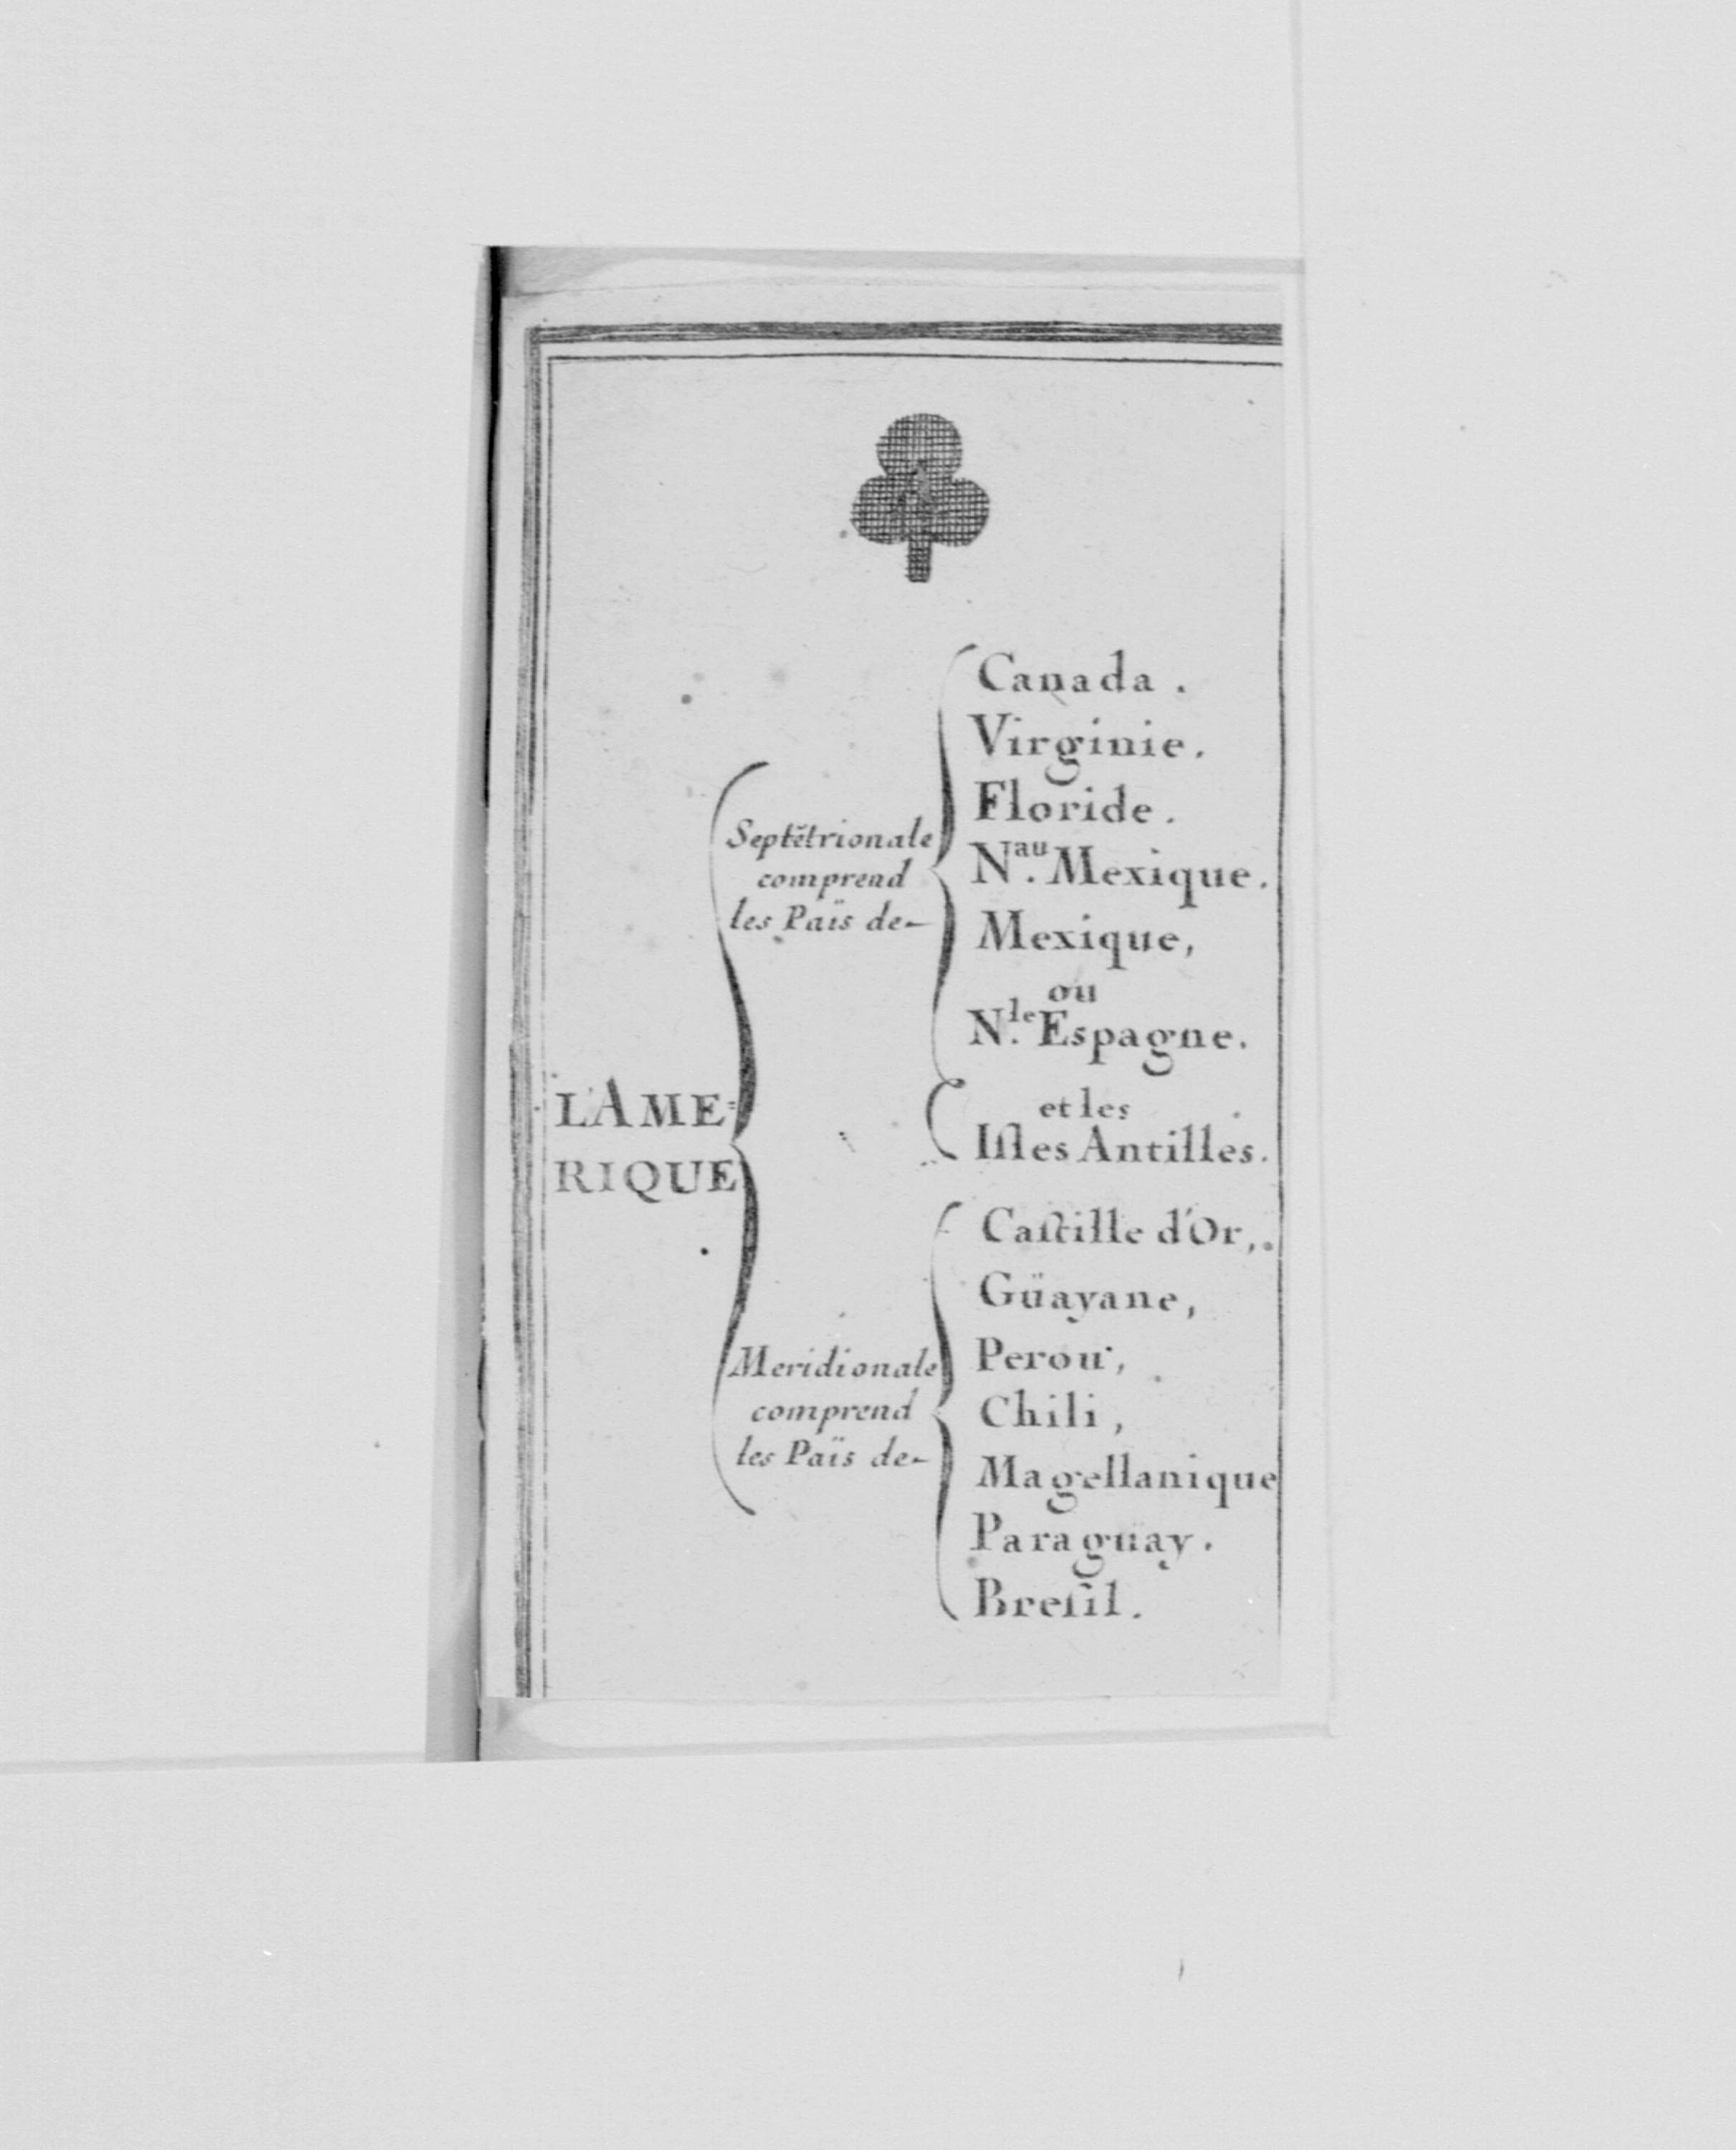 L'AME=
RIQUE
Septẽtrionale
comprend
les Païs de
Canada.
Virginie.
Floride.
N.au Mexique.
Mexique,
ou
N.le Espagne.
et les
Iſles Antilles.
Meridionale
comprend
les Païs de
Caſtille d'Or,.
Güayane,
Perou,
Chili,
Magellanique
Paragüay.
Breſil.